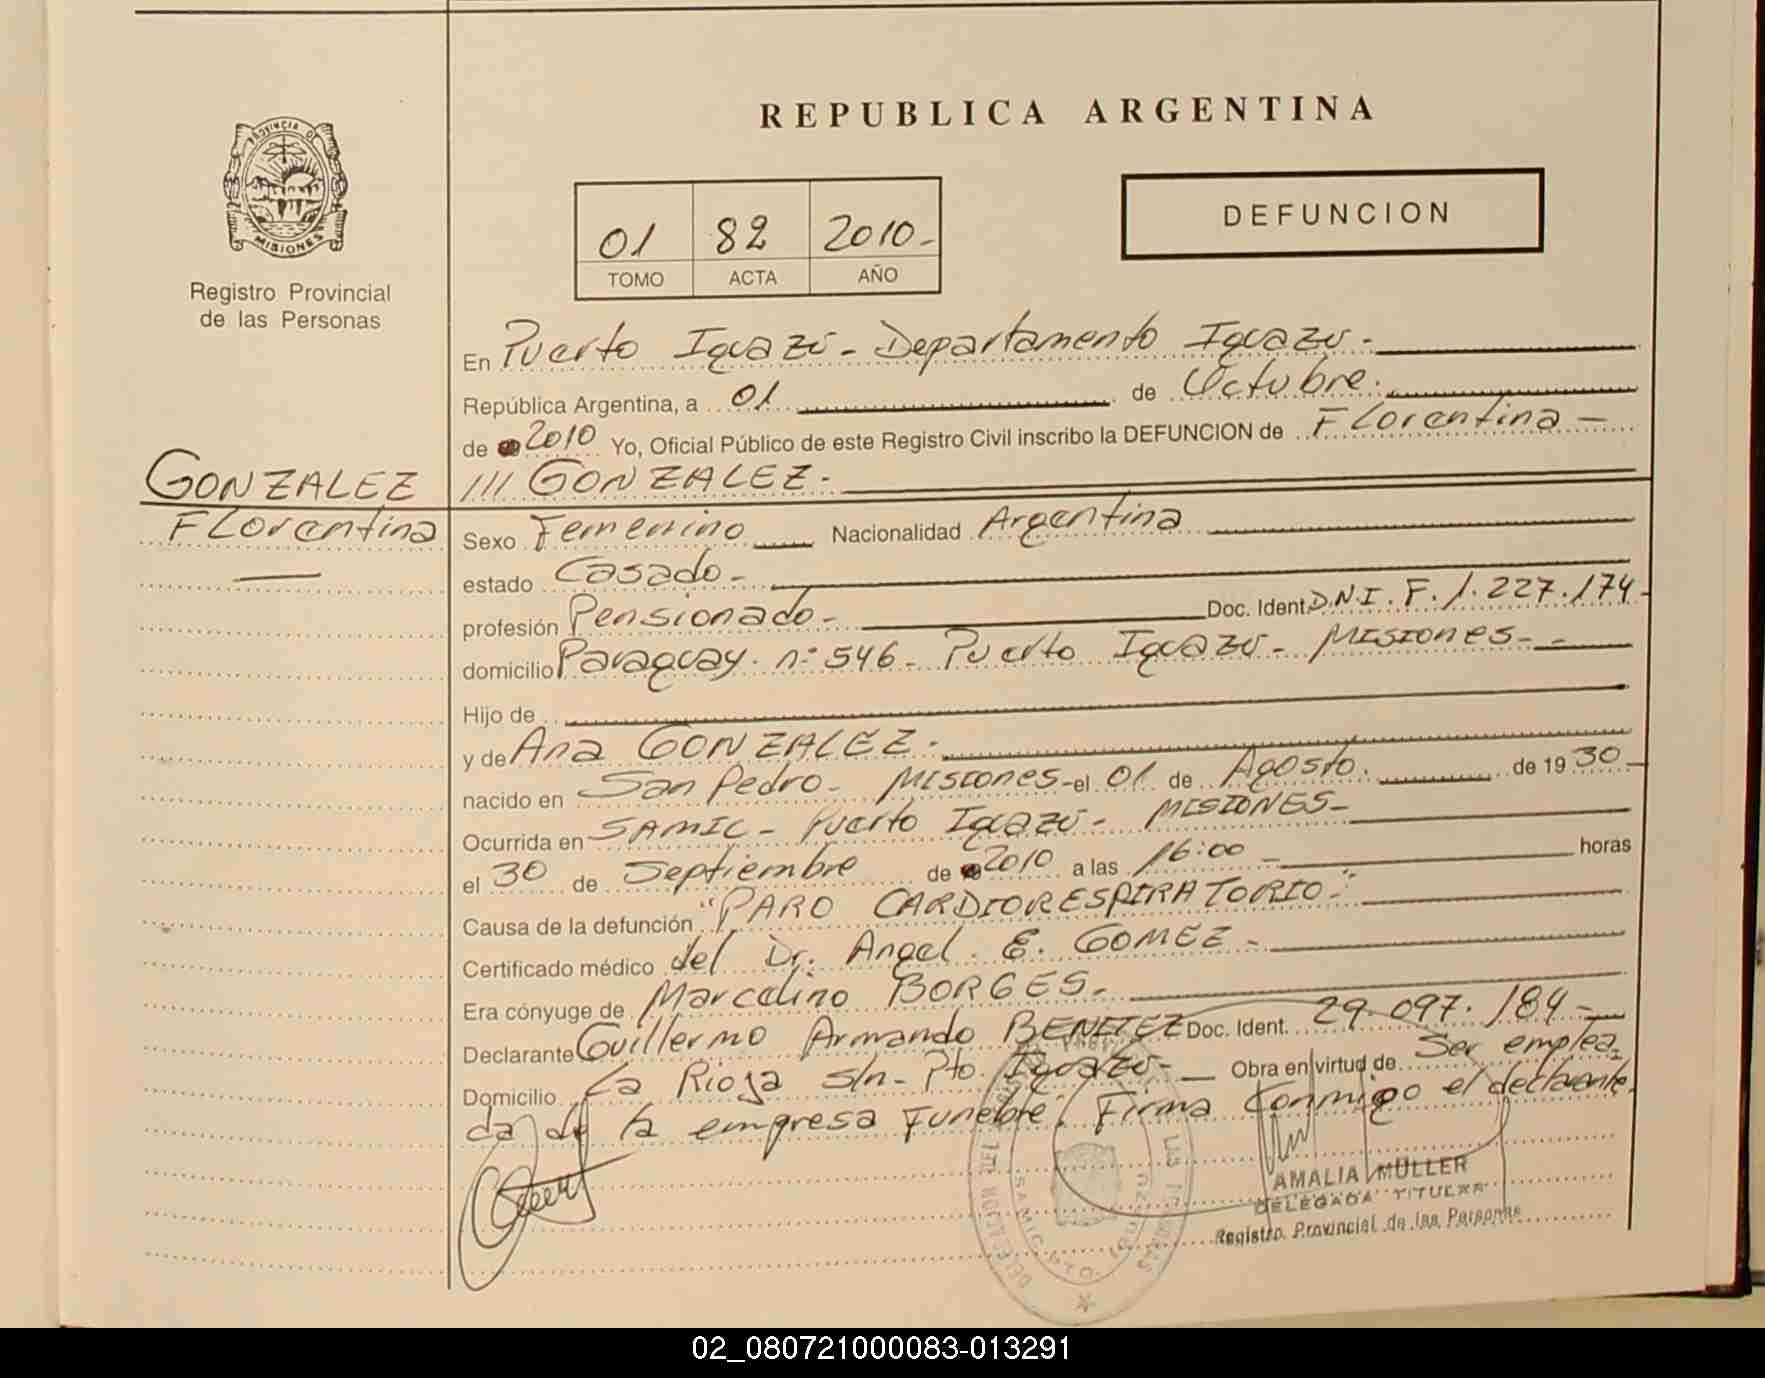 REPUBLICA ARGENTINA
PROVINCIA DE
MISIONES
Registro Provincial
de las Personas
01 82 2010-
TOMO ACTA AÑO
DEFUNCION
En Puerto Iguazú - Departamento Iguazú -
República Argentina, a 01 de Octubre.
de 2010 Yo, Oficial Público de este Registro Civil inscribo la DEFUNCION de Florentina -
/// GONZALEZ.-
GONZALEZ
Florentina
Sexo Femenino Nacionalidad Argentina
estado Casado -
profesión Pensionado - Doc. Ident. D.N.I. F. 1.227.174-
domicilio Paraguay. n° 546 - Puerto Iguazú - MISIONES - -
Hijo de
y de Ana GONZALEZ.
nacido en San Pedro - MISIONES - el 01 de Agosto. de 1930 -
Ocurrida en SAMIC - Puerto Iguazú - MISIONES -
el 30 de Septiembre de 2010 a las 16:00 - horas
Causa de la defunción "PARO CARDIORESPIRATORIO-"
Certificado médico del Dr. Angel. E. GOMEZ -
Era cónyuge de Marcelino BORGES.
Declarante Guillermo Armando BENITEZ Doc. Ident. 29.097.184 -
Domicilio La Rioja s/n - Pto. Iguazú - Obra en virtud de Ser emplea
da de la empresa Funebre. Firma conmigo el declarante.
AMALIA MÜLLER
DELEGADA TITULAR
Registro Provincial de las Personas
SAMIC PTO.
02_080721000083-013291